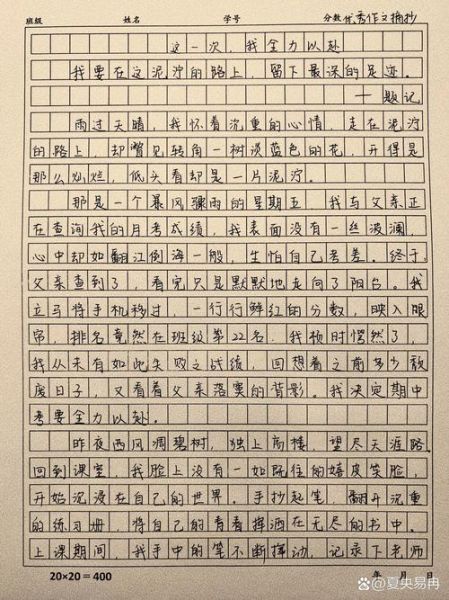 班级 姓名 学号 分数 优秀作文摘抄
这一次，我全力以赴
我要在这泥泞的路上，留下最深的足迹。
——题记
雨过天晴，我怀着沉重的心情，走在泥泞
的路上，却瞥见转角一树淡蓝色的花，开得是
那么灿烂，低头看却是一片泥泞。
那是一个暴风骤雨的星期五，我与父亲正
在查询我的月考成绩，我表面没有一丝波澜，
心中却如翻江倒海一般，生怕自己考差。终于，
父亲查到了，看完只是默默地走向了阳台。我
立马将手机移过，一行行鲜红的分数，映入眼
帘，排名竟然在班级第22名，我顿时愕然了，
我从未有如此失败之战绩，回想着之前多少颓
废日子，又看着父亲落寞的背影。我决定期中
考要全力以赴。
昨夜西风凋碧树，独上高楼，望尽天涯路。
回到课室，我脸上没有一如既往的嬉皮笑脸，
开始沉浸在自己的世界。手抄起笔，翻开沉重
的练习册，将自己的青春挥洒在无尽的书中。
上课期间，我手中的笔不断挥动，记录下老师
20×20=400 年 月 日
@夏央易冉